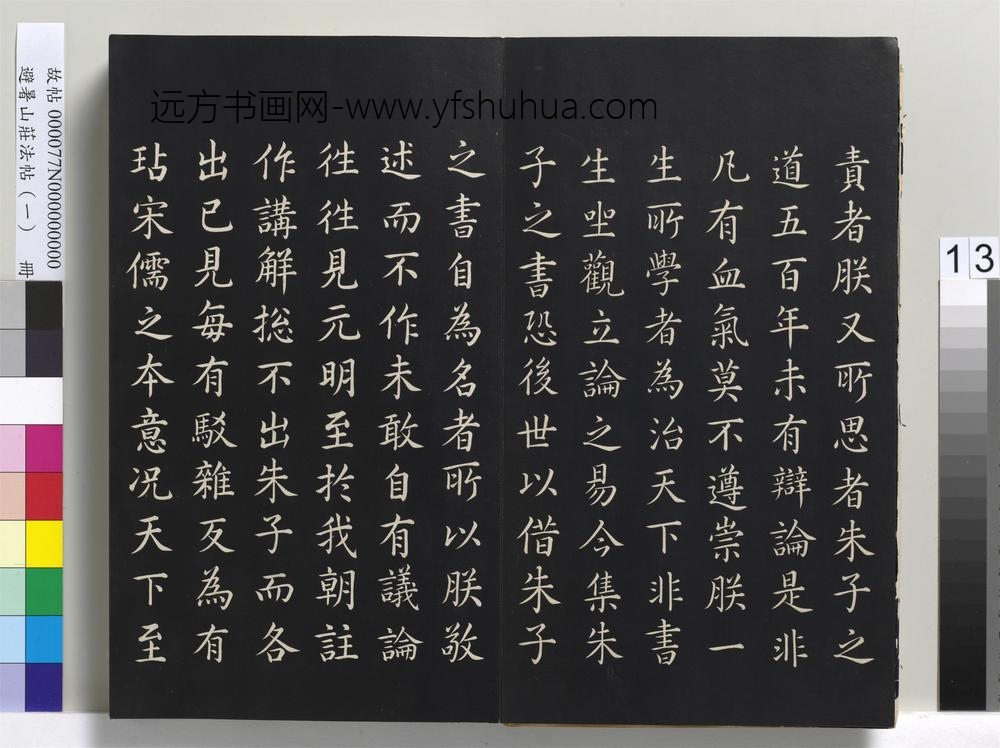 責者朕又所思者朱子之
道五百年未有辯論是非
凡有血氣莫不遵崇朕一
生所學者為治天下非書
生坐觀立論之易今集朱
子之書恐後世以借朱子
之書自為名者所以朕敬
述而不作未敢自有議論
往往見元明至於我朝註
作講解總不出朱子而各
出己見每有駁雜反為有
玷宋儒之本意况天下至
远方书画网-www.yfshuhua.com
故帖 000077N000000000
避暑山莊法帖（一） 冊
13